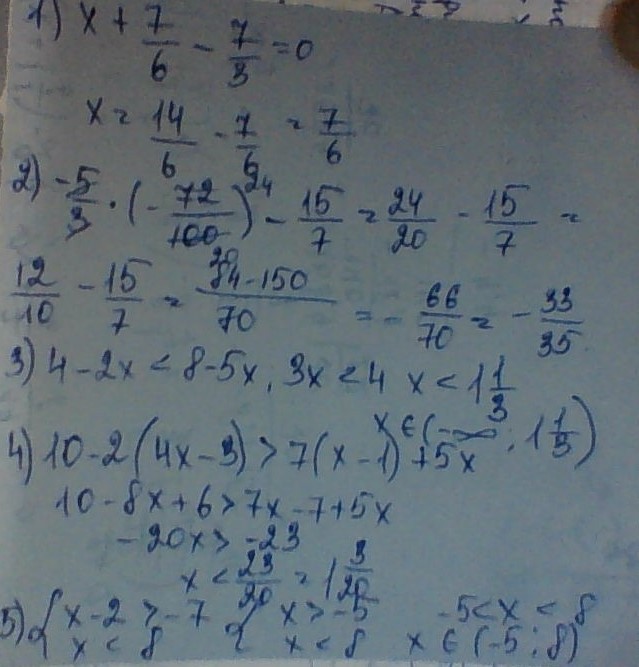 1) x + 7/6 - 7/3 = 0
x = 14/6 - 7/6 = 7/6
2) -5/3 · (-72/100) 24 - 15/7 = 24/20 - 15/7 =
20
12/10 - 15/7 = 84-150/70 = -66/70 = -33/35
3) 4-2x < 8-5x, 3x < 4 x < 1 1/3
x ∈ (-∞; 1 1/3)
4) 10-2(4x-3) > 7(x-1) +5x
10-8x+6 > 7x-7+5x
-20x > -23
x < 23/20 = 1 3/20
5) { x-2 > -7 { x > -5 -5 < x < 8
x < 8 x < 8 x ∈ (-5; 8)